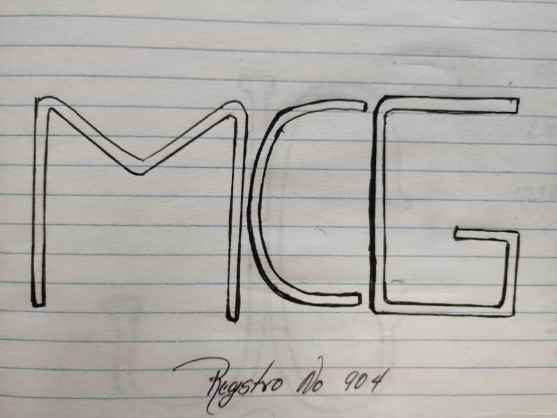 MCG
Registro No 904